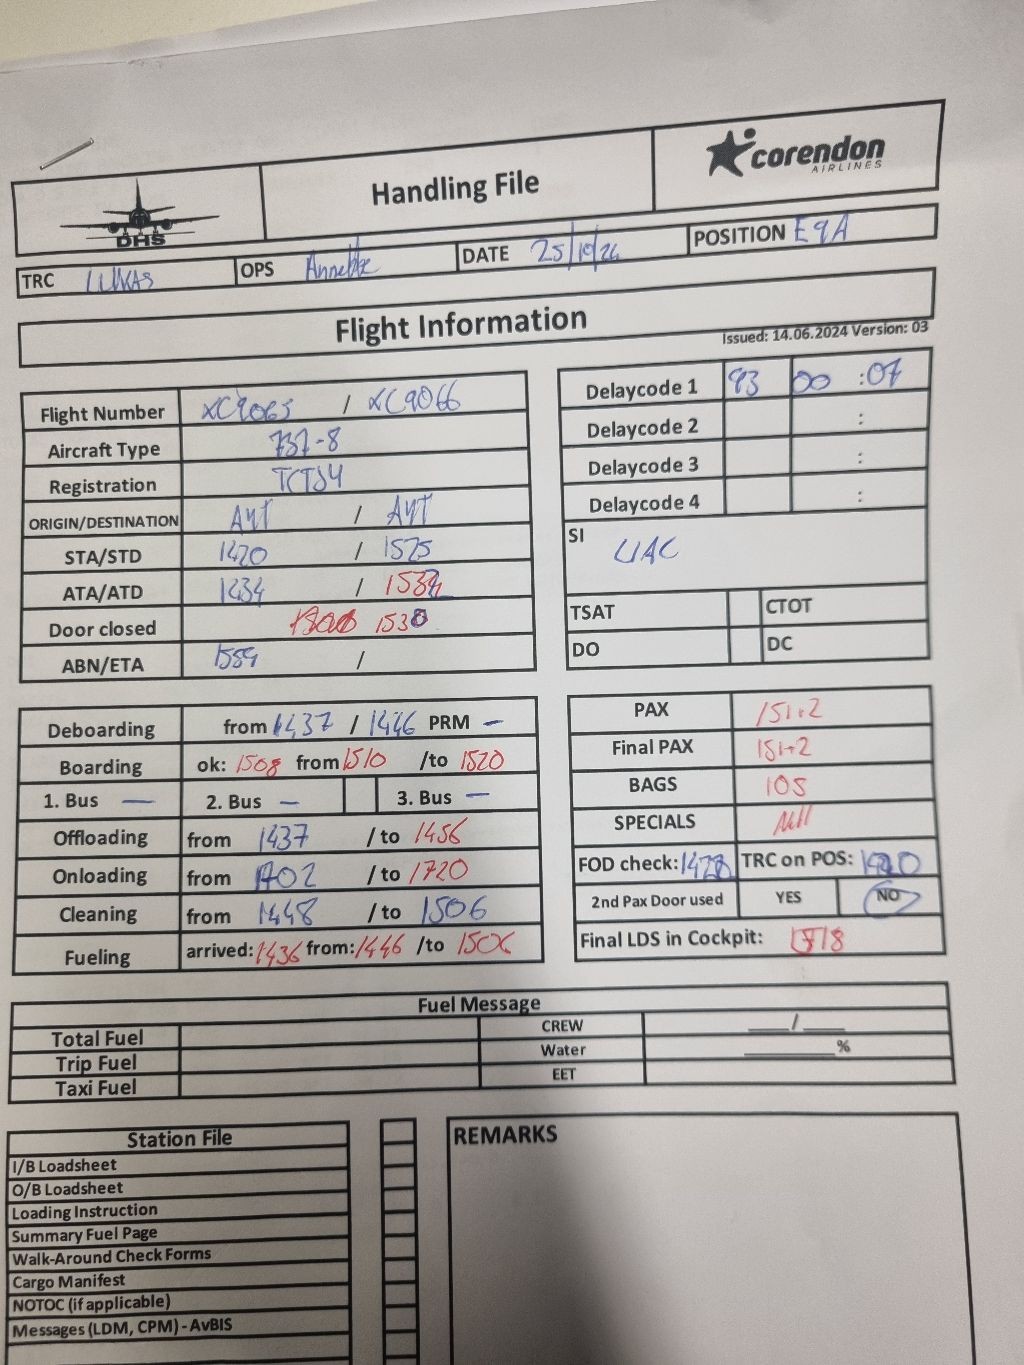 DHS
Handling File
corendon
AIRLINES
TRC LUKAS OPS Annebke DATE 25/10/24 POSITION E9A
Flight Information
Issued: 14.06.2024 Version: 03
Flight Number XC9065 / XC9066
Aircraft Type 737-8
Registration TCTJ4
ORIGIN/DESTINATION AYT / AYT
STA/STD 1420 / 1525
ATA/ATD 1434 / 1532
Door closed 1530
ABN/ETA 1559 /
Delaycode 1 93 00 :07
Delaycode 2 :
Delaycode 3 :
Delaycode 4 :
SI
LIAC
TSAT CTOT
DO DC
Deboarding from 1437 / 1446 PRM –
Boarding ok: 1508 from 1510 /to 1520
1. Bus — 2. Bus – 3. Bus –
Offloading from 1437 / to 1456
Onloading from 1702 / to 1720
Cleaning from 1448 / to 1506
Fueling arrived: 1436 from: 1446 /to 1506
PAX 151+2
Final PAX 151+2
BAGS 105
SPECIALS Nil
FOD check: TRC on POS:
2nd Pax Door used YES NO
Final LDS in Cockpit: 1518
Fuel Message
Total Fuel CREW ___/___
Trip Fuel Water _________%
Taxi Fuel EET
Station File
I/B Loadsheet
O/B Loadsheet
Loading Instruction
Summary Fuel Page
Walk-Around Check Forms
Cargo Manifest
NOTOC (if applicable)
Messages (LDM, CPM) - AvBIS
REMARKS